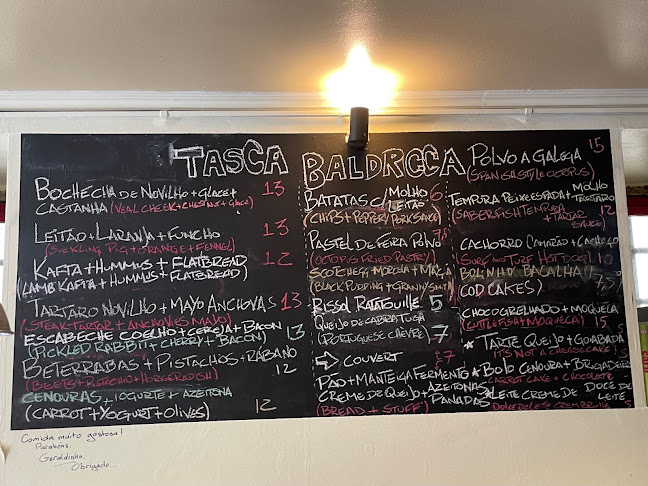 TASCA BALDRCCA
BOCHECHA DE NOVILHO + GLACE +
CASTANHA (VEAL CHEEK + CHESTNUT + GLACE) 13
LEITÃO + LARANJA + FUNCHO 13
(SUCKLING PIG + ORANGE + FENNEL)
KAFTA + HUMMUS + FLATBREAD 12
(LAMB KAFTA + HUMMUS + FLATBREAD)
TARTARO NOVILHO + MAYO ANCHOVAS 13
(STEAK TARTAR + ANCHOVIES MAYO)
ESCABECHE COELHO + CEREJA + BACON
(PICKLED RABBIT + CHERRY + BACON) 13
BETERRABAS + PISTACHOS + RÁBANO 12
(BEETS + PISTACHIO + HORSERADISH)
CENOURAS + IOGURTE + AZEITONA
(CARROT + YOGURT + OLIVES) 12
BATATAS C/ MOLHO LEITÃO 6
(CHIPS + PEPPERY PORK SAUCE)
PASTEL DE FEIRA POLVO
(OCTOPUS FRIED PASTRY)
SCOTCH EGG, MORCELA + MAÇÃ
(BLACK PUDDING + GRANNY SMITH)
RISSOL RATATOUILLE 5
QUEIJO DE CABRA TUGA
(PORTUGUESE CHÈVRE) 7
COUVERT 7
PÃO + MANTEIGA FERMENTO +
CREME DE QUEIJO + AZEITONAS PANADAS
(BREAD + STUFF)
POLVO A GALEGA 15
(SPANISH STYLE OCTOPUS)
TEMPURA PEIXE ESPADA + MOLHO TARTARO
(SABERFISH TEMPURA + TARTAR SAUCE) 12
CACHORRO CAMARÃO +
(SURF AND TURF HOT DOG) 10
BOLINHO BACALHAU
(COD CAKES)
CHOCO GRELHADO + MOQUECA
(CUTTLEFISH + MOQUECA) 15
* TARTE QUEIJO + GOIABADA
IT'S NOT A CHEESECAKE! 5
* BOLO CENOURA + BRIGADEIRO
CARROT CAKE + CHOCOLATE
* LEITE CREME DE DOCE DE LEITE
DOCE DE LEITE CREM BRULEE 5
Comida muito gostosa!
Parabéns.
Geraldinho.
Obrigado...